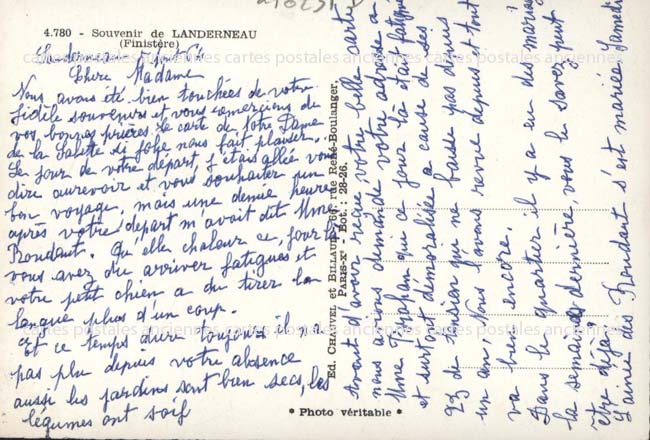 4.780 - Souvenir de LANDERNEAU
(Finistère)
Landerneau 5 Août 64
Chère Madame
Nous avons été bien touchées de votre
fidèle souvenir et vous remercions de
vos bonnes prières. La carte de Notre Dame
de la Salette si jolie nous fait plaisir.
Le jour de votre départ j'étais allée vous
dire aurevoir et vous souhaiter un
bon voyage, mais une demie heure
après votre départ m'avait dit Mme
Rondaut. Qu'elle chaleur ce jour là
vous avez du arriver fatigués et
votre petit chien a du tirer la
langue plus d'un coup.
Et ce temps dure toujours il n'a
pas plu depuis votre absence
aussi les jardins sont bien secs, les
légumes ont soif
Ed. CHAUVEL et BILLAUD, 66, rue René-Boulanger,
PARIS-Xe - Bot. : 28-26.
* Photo véritable *
Avant d'avoir reçue votre belle carte
nous avions demandé votre adresse a
Mme qui ce jour là était fatiguée
et surtout démoralisée a cause de ses
23 de tension qui ne baisse pas depuis
un an. Nous l'avons revue depuis et tout
va bien encore.
Dans le quartier il y a eu des mariages
la semaine dernière, vous le savez peut
être déjà.
L'ainée des Rondaut s'est mariée Samedi
cartes postales anciennes cartes postales anciennes cartes postales anciennes
cartes postales anciennes cartes postales anciennes cartes postales anciennes